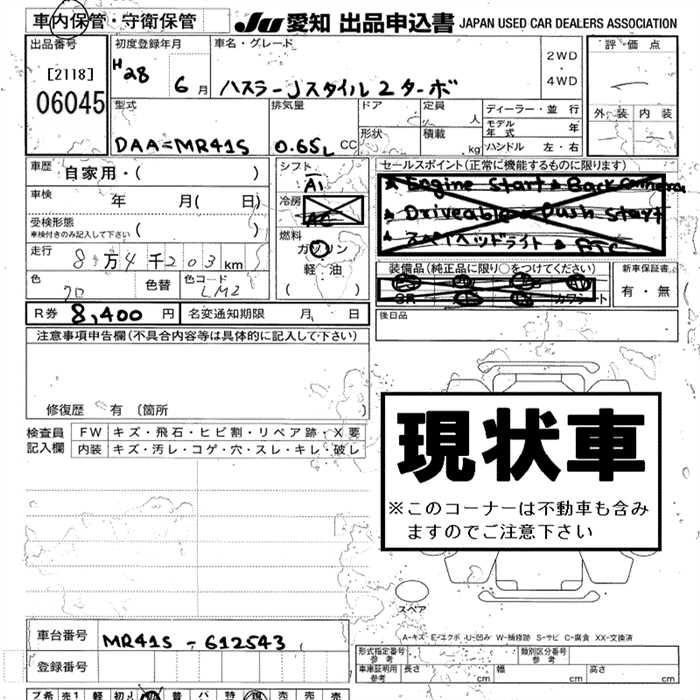 車内保管・守衛保管
JU 愛知 出品申込書 JAPAN USED CAR DEALERS ASSOCIATION
出品番号
[2118]
06045
初度登録年月
H28 6月
車名・グレード
ハスラーJスタイル2ターボ
2WD
・
4WD
評価点
外装 内装
型式
DAA-MR41S
排気量
0.65L CC
ドア
形状
定員 人
積載 kg
ディーラー・並行
モデル年式 年
ハンドル 左・右
車歴
自家用・( )
車検 年 月( 日)
受検形態
※検付きのみ記入して下さい ( )
走行
8十万4千203km
色 色替 色コード
クロ LM2
シフト
AT
冷房
AC
燃料
ガソリン
軽・油
( )
セールスポイント(正常に機能するものに限ります)
★ Engine Start ★ Back Camera
★ Driveable ★ Push Start
★ スペアヘッドライト ★ ETC
装備品(純正品に限り○をつけてください)
SR カワシート
新車保証書
有・無
後日品
R券 8,400円 名変通知期限 月 日
注意事項申告欄(不具合内容等は具体的に記入して下さい)
修復歴 有 〔箇所
検査員
記入欄
FW キズ・飛石・ヒビ割・リペア跡・X要
内装 キズ・汚レ・コゲ・穴・スレ・キレ・破レ
現状車
※このコーナーは不動車も含み
ますのでご注意下さい
スペア
A-キズ E-エクボ U-凹み W-補修跡 S-サビ C-腐食 XX-交換済
車台番号 MR41S-612543
登録番号
形式指定番号 参考
類別区分番号 参考
車庫証明用 参考 長さ cm 幅 cm 高さ cm